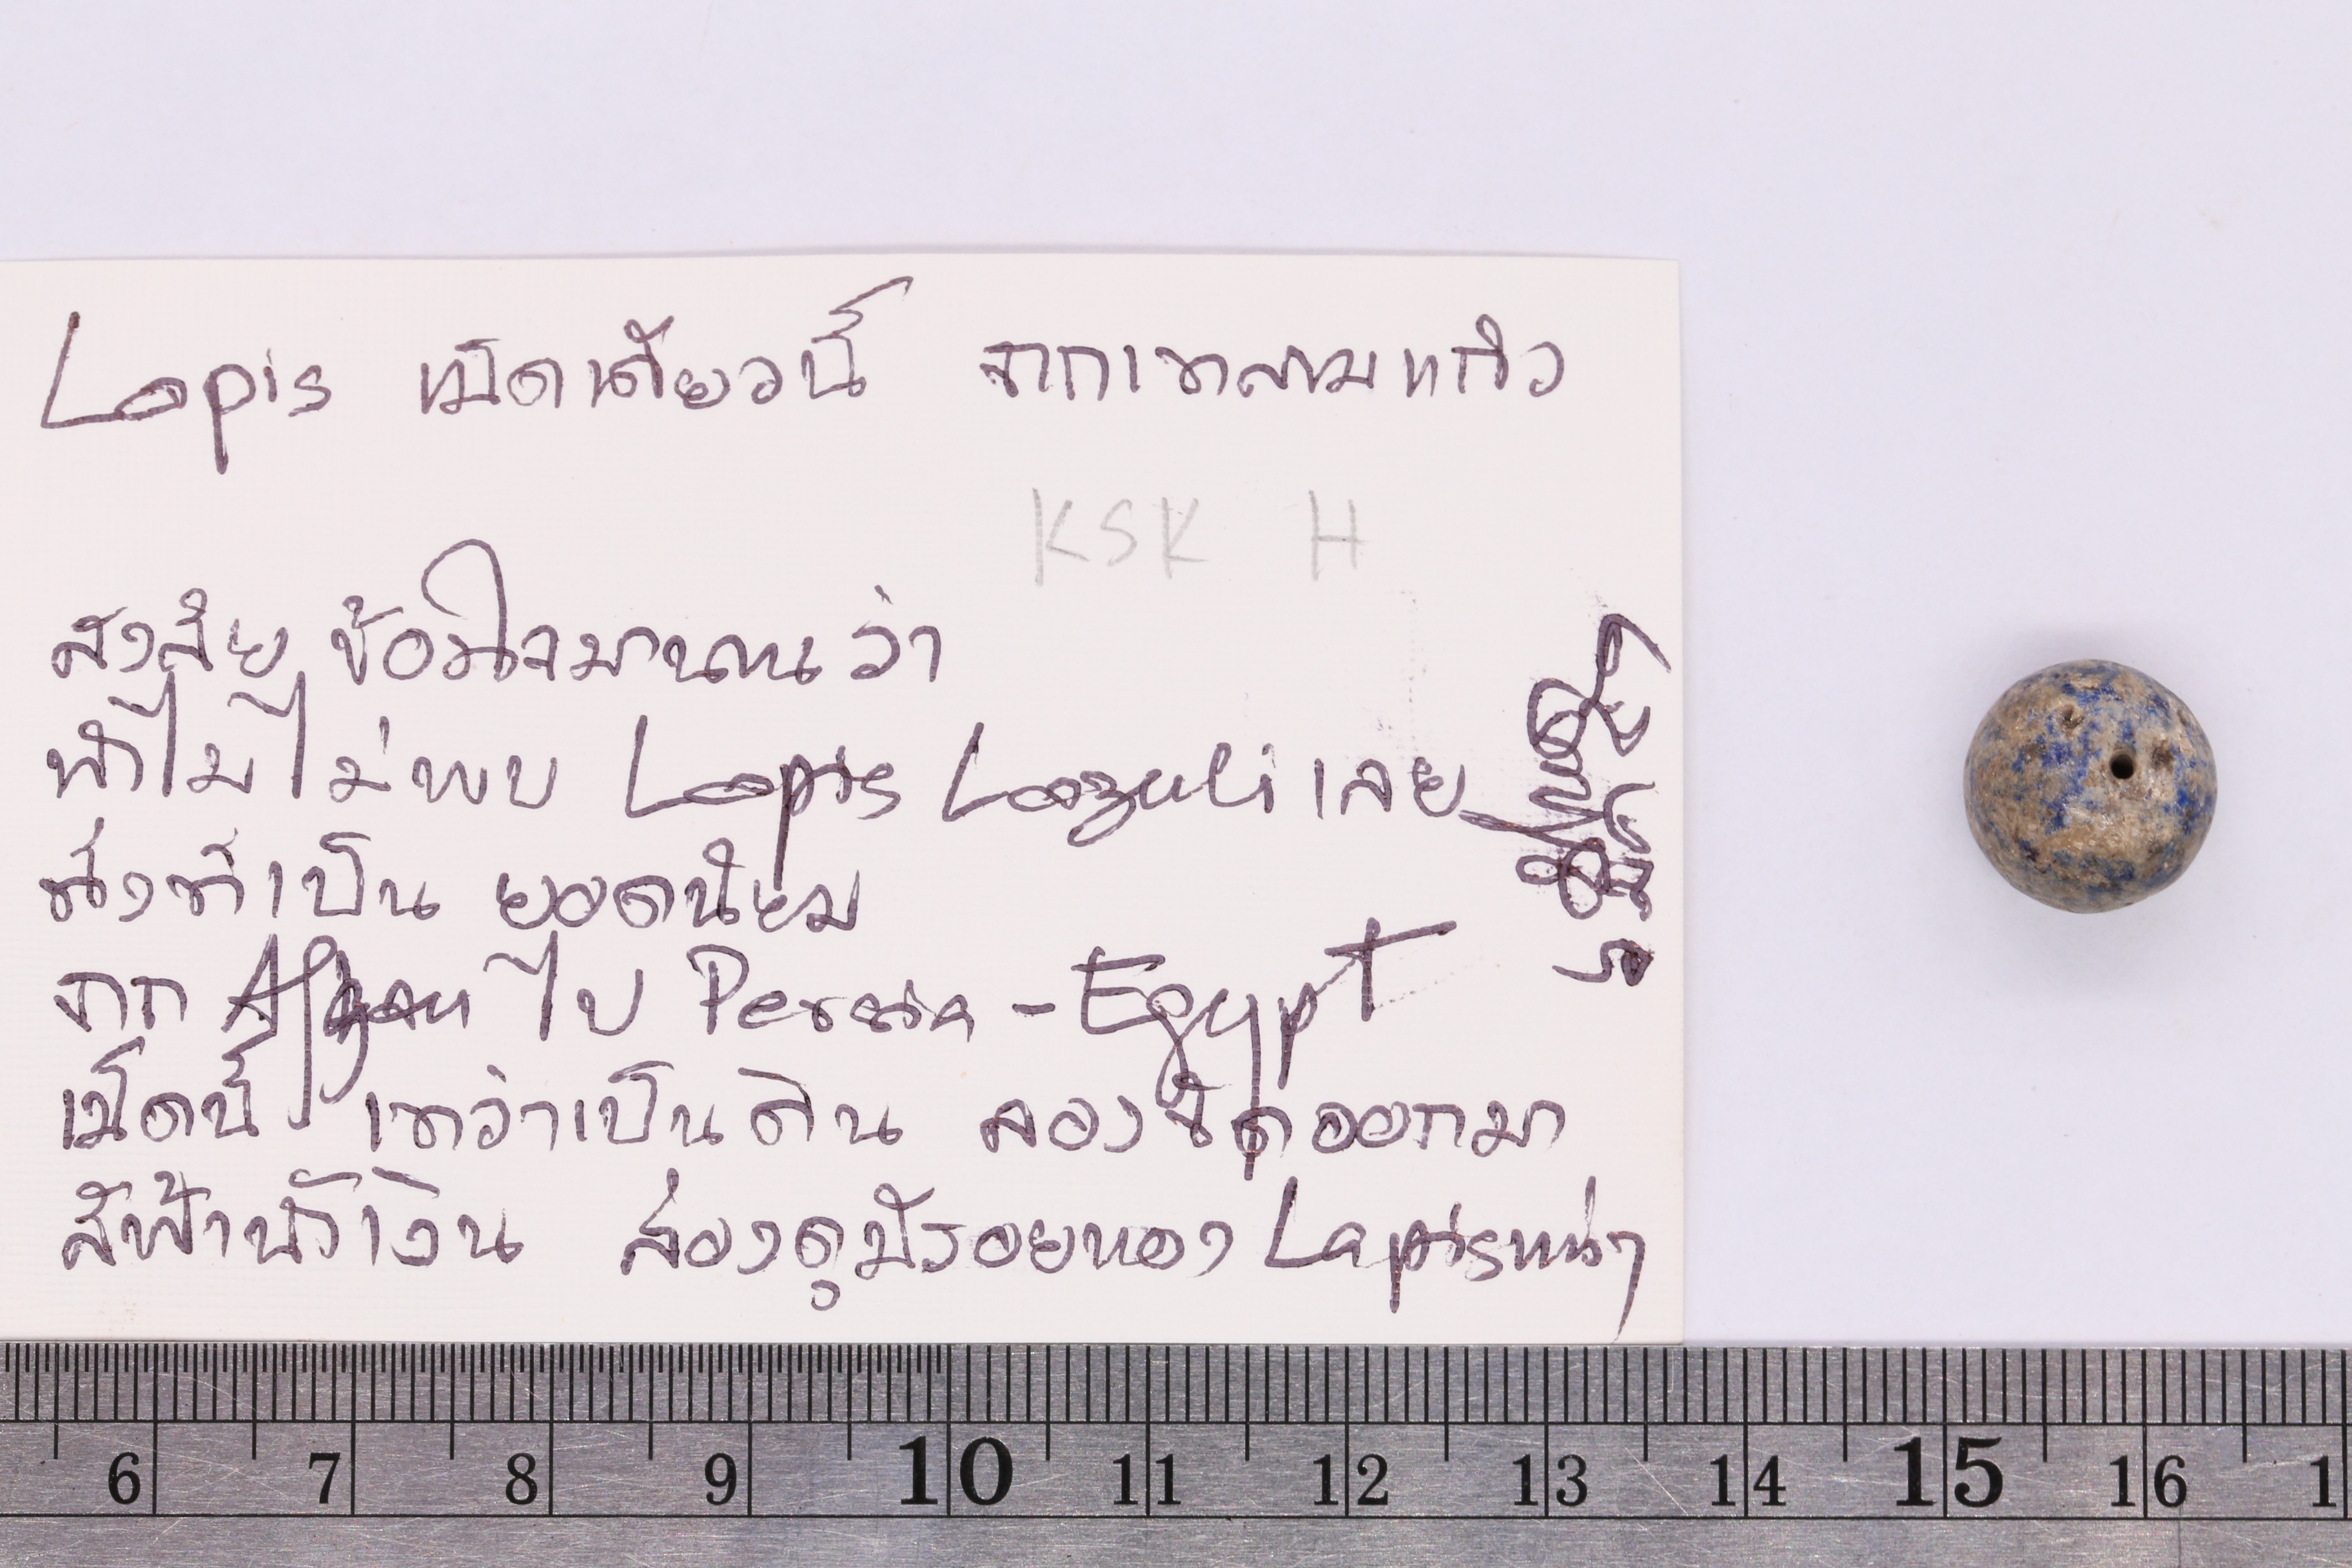 Lapis เม็ดเดียวนี้ จากเขาสามแก้ว
KSK H
สงสัย ข้องใจมานานว่า
ทำไมไม่พบ Lapis Lazuli เลย
ทั้งที่เป็น ยอดนิยม
จาก Afgan ไป Persia - Egypt
เม็ดนี้ เขาว่าเป็นดิน ลองขัดออกมา
สีฟ้าน้ำเงิน ส่องดูมีรอยของ Lapis แน่ๆ
6 7 8 9 10 11 12 13 14 15 16 1